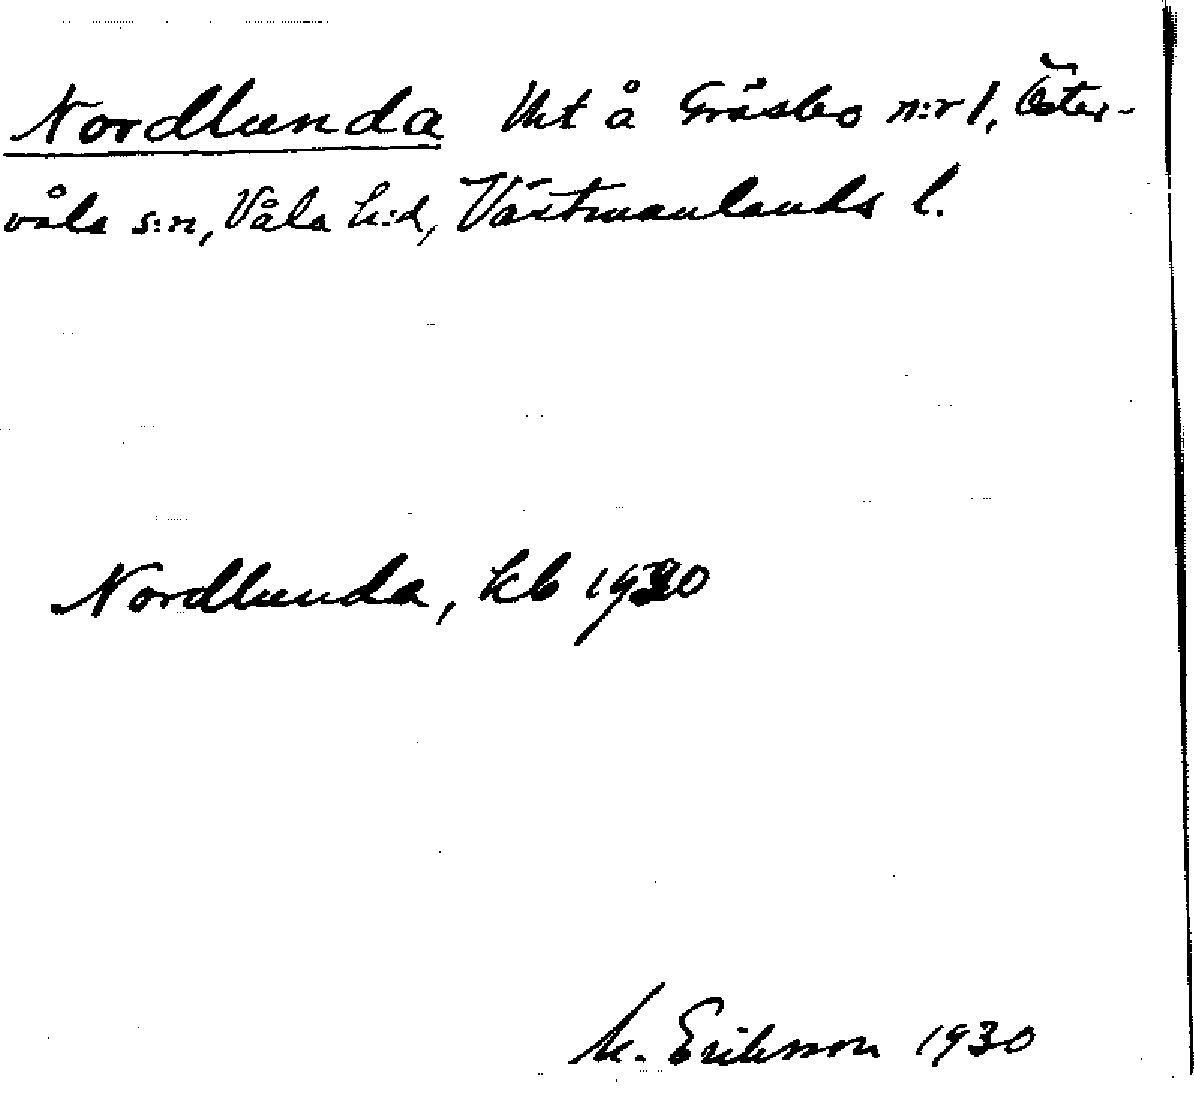 Nordlunda lht å Gräsbo n:r 1, Öster-
våla s:n, Våla h:d, Västmanlands l.
Nordlunda, kb 1930
M. Eriksson 1930